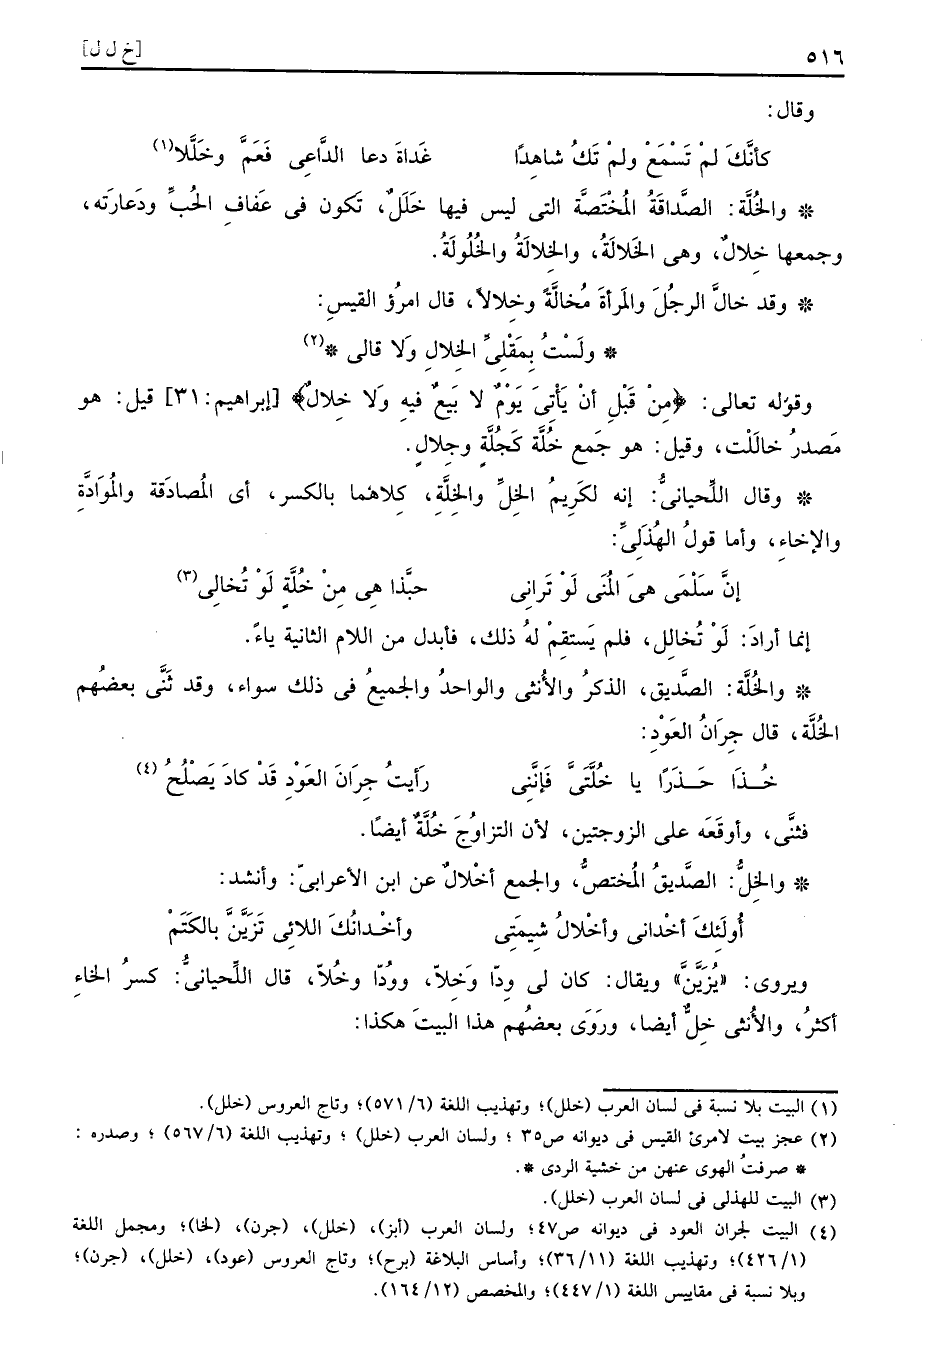 ٥١٦ [خ ل ل]
وقال:
كأنَّكَ لمْ تَسْمَعْ ولمْ تَكُ شاهِدًا غَداةَ دعا الدَّاعِى فَعَمَّ وخَلَّلا(١)
* والخُلَّة: الصَّداقَةُ المُخْتَصَّة التى ليس فيها خَلَلٌ، تَكون فى عَفافِ الحُبِّ ودَعارَتِه،
وجمعها خِلالٌ، وهى الخَلالَةُ، والخِلالَةُ والخُلُولَةُ.
* وقد خالَّ الرجلُ والمَرأةَ مُخالَّةً وخِلالاً، قال امرُؤ القيسِ:
* ولَسْتُ بِمَقْلِىِّ الخِلالِ ولَا قالى *(٢)
وقوله تعالى: ﴿مِنْ قَبْلِ أنْ يَأْتِىَ يَوْمٌ لا بَيعٌ فِيهِ وَلَا خِلالٌ﴾ [إبراهيم: ٣١] قيل: هو
مَصدرُ خالَلْت، وقيل: هو جَمع خُلَّة كَجُلَّةٍ وجِلالٍ.
* وقال اللِّحيانىُّ: إنه لكَرِيمُ الخِلِّ والخِلَّةِ، كِلاهُما بالكسر، أى المُصادَقة والمُوَادَّةِ
والإخاءِ، وأما قولُ الهُذَلِىِّ:
إنَّ سَلْمَى هىَ المُنَى لَوْ تَرانِى حبَّذا هِى مِنْ خُلَّةٍ لَوْ تُخالِى(٣)
إنما أرادَ: لَوْ تُخالِل، فلم يَستقمْ لهُ ذلك، فأبدل من اللام الثانية ياءً.
* والخُلَّة: الصَّديق، الذكرُ والأُنثى والواحدُ والجميعُ فى ذلك سواء، وقد ثَنَّى بعضُهم
الخُلَّة، قال جِرَانُ العَوْدِ:
خُــذا حَــذَرًا يا خُلَّتَىَّ فَإنَّنِى رَأيتُ جِرَانَ العَوْدِ قَدْ كادَ يَصْلُحُ(٤)
فثنَّى، وأوقَعَه على الزوجتين، لأن التزاوُجَ خُلَّةٌ أيضًا.
* والخِلُّ: الصَّديقُ المُختصُّ، والجمع أخْلالٌ عن ابن الأعرابىّ: وأنشد:
أُولَئِكَ أخْدانى وأخْلالُ شِيمَتِى وأخْـدانُكَ اللائِى تَزَيَّنَّ بالكَتَمْ
ويروى: «يُزَيَّنَّ» ويقال: كان لى وِدّا وَخِلاّ، ووُدّا وخُلاّ، قال اللِّحيانىُّ: كسرُ الخاءِ
أكثرُ، والأُنثى خِلٌّ أيضا، ورَوَى بعضُهم هذا البيتَ هكذا:
(١) البيت بلا نسبة فى لسان العرب (خلل)؛ وتهذيب اللغة (٥٧١/٦)؛ وتاج العروس (خلل).
(٢) عجز بيت لامرئ القيس فى ديوانه ص٣٥ ؛ ولسان العرب (خلل) ؛ وتهذيب اللغة (٥٦٧/٦) ؛ وصدره :
* صرفتُ الهوى عنهن من خشية الردى *.
(٣) البيت للهذلى فى لسان العرب (خلل).
(٤) البيت لجران العود فى ديوانه ص٤٧؛ ولسان العرب (أبز)، (خلل)، (جرن)، (لخا)؛ ومجمل اللغة
(٤٢٦/١)؛ وتهذيب اللغة (٣٦/١١)؛ وأساس البلاغة (برح)؛ وتاج العروس (عود)، (خلل)، (جرن)؛
وبلا نسبة فى مقاييس اللغة (٤٤٧/١)؛ والمخصص (١٦٤/١٢).